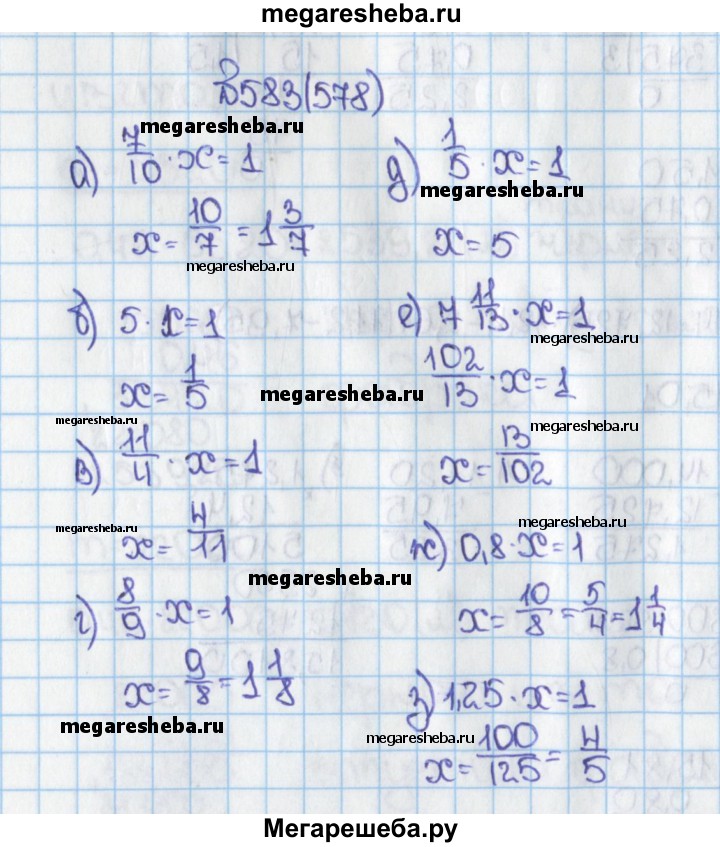 megaresheba.ru
№583(578)
megaresheba.ru
а) 7/10 · x = 1
x = 10/7 = 1 3/7
megaresheba.ru
б) 5 · x = 1
x = 1/5
megaresheba.ru
в) 11/4 · x = 1
megaresheba.ru
x = 4/11
megaresheba.ru
г) 8/9 · x = 1
x = 9/8 = 1 1/8
megaresheba.ru
д) 1/5 · x = 1
megaresheba.ru
x = 5
е) 7 11/13 · x = 1
megaresheba.ru
102/13 · x = 1
megaresheba.ru
megaresheba.ru
x = 13/102
megaresheba.ru
ж) 0,8 · x = 1
x = 10/8 = 5/4 = 1 1/4
з) 1,25 · x = 1
megaresheba.ru
x = 100/125 = 4/5
Мегарешеба.ру